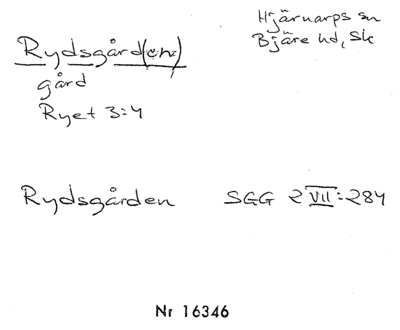 Hjärnarps sn
Bjäre hd, Sk
Rydsgård(en)
gård
Ryet 3:4
Rydsgården SGG 2 VII:284
Nr 16346